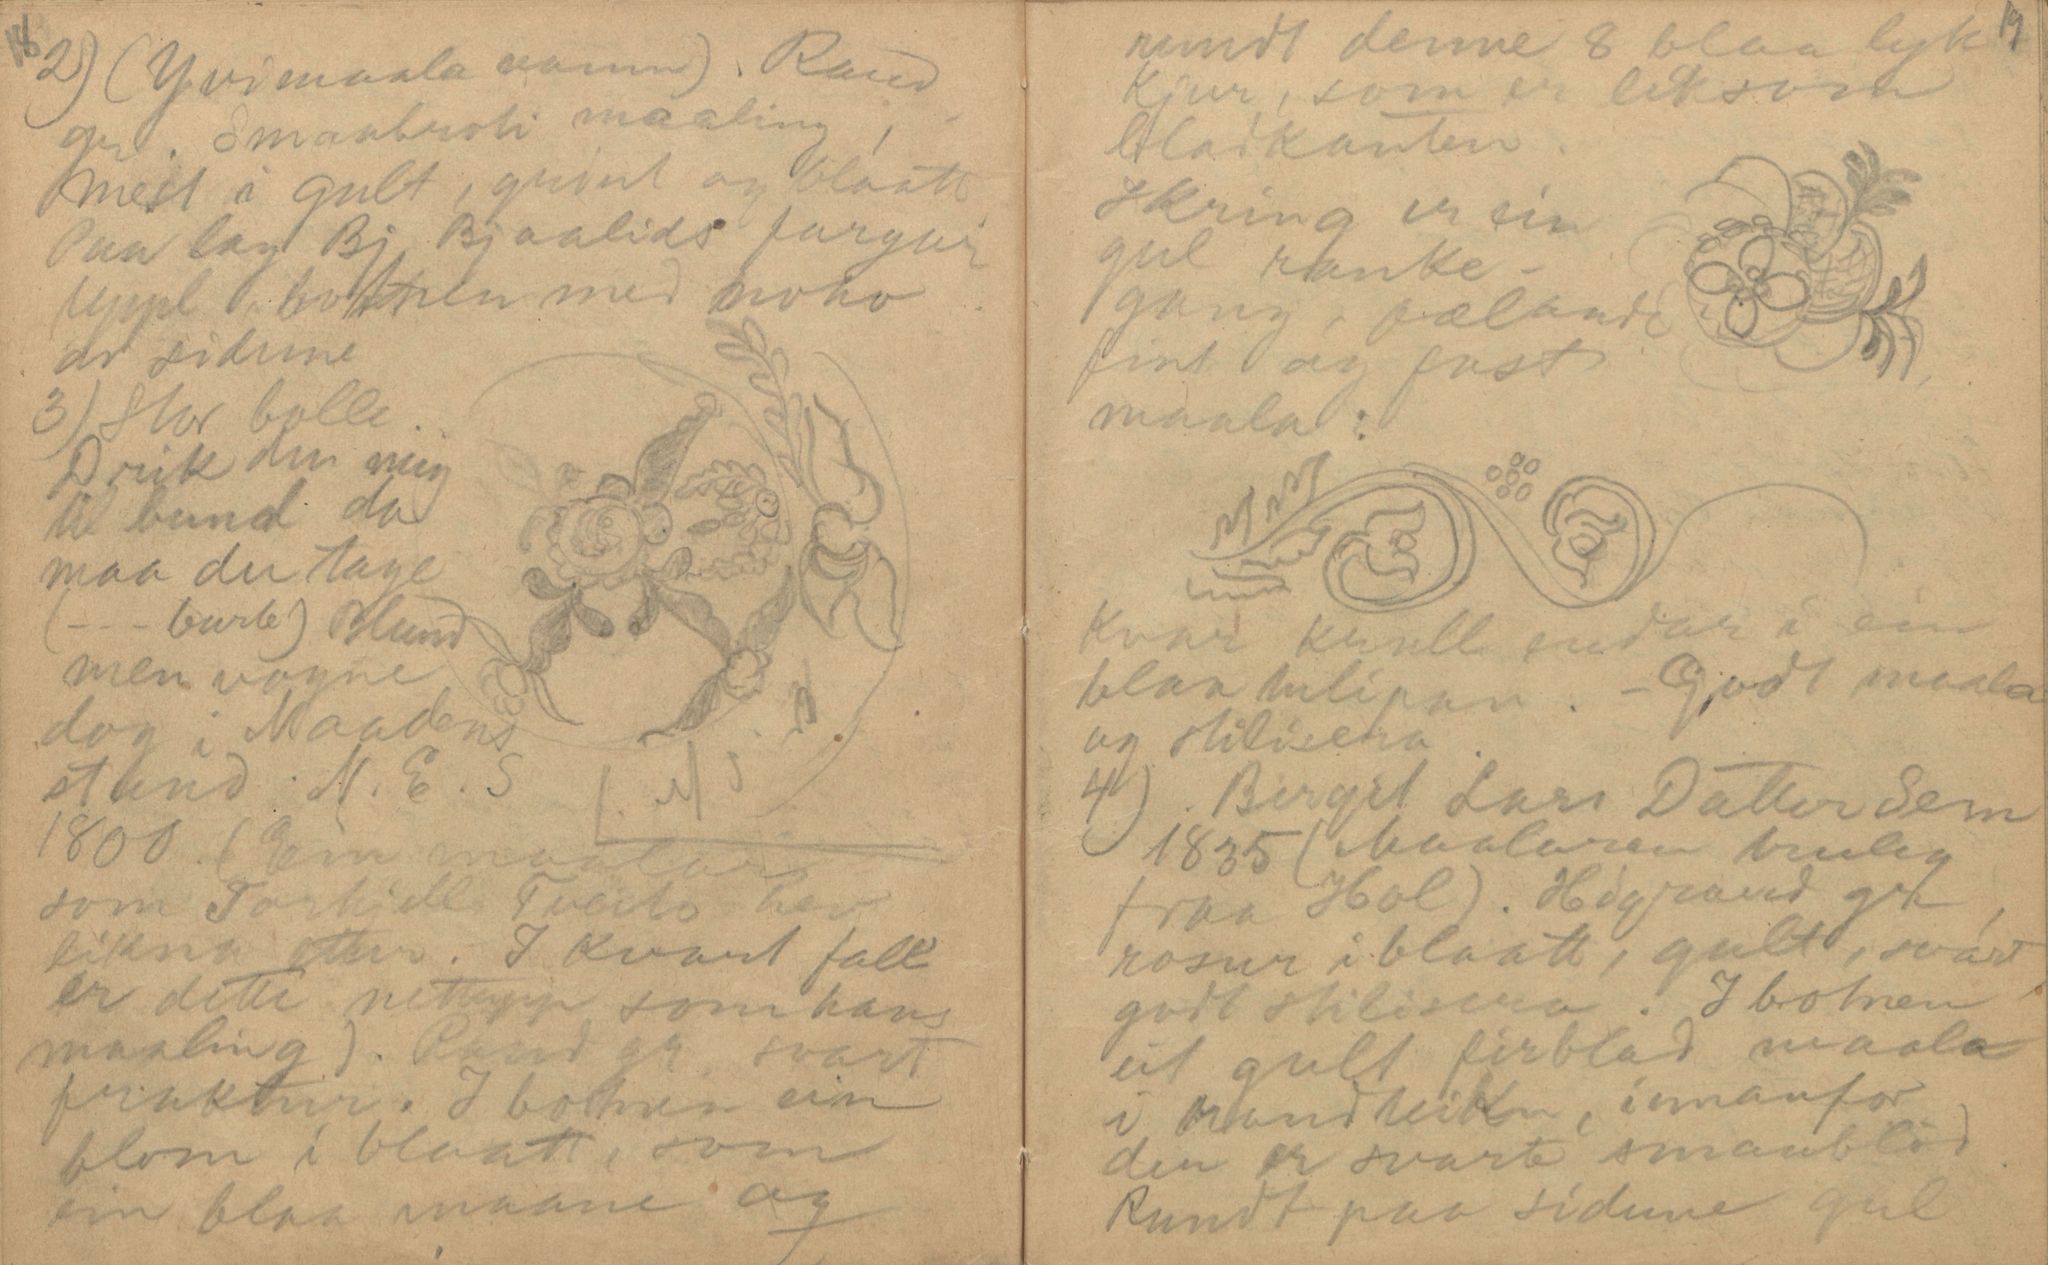 16
2) (Yvimaala namn). Raud
gr. Smaabroti maaling,
mest i gult, grønt og blaatt
Paa lag Bj. Bjaalids fargar
Uppl. botnen med noko
av sidune
3) Stor bolle.
Drik du mig
til bund da
maa du tage
(--- burt) Blund
men vogne
dog i Naadens
stand. N. E. S
1800. (Ein maalar
som Torkjell Tveito hev
likna etter. I kvart fall
er dette nettupp som hans
maaling). Raud gr. svart
fraktur. I botnen ein
blom i blaatt, som
ein blaa maane og
19
rundt denne 8 blaa lyk
kjur, som er liksom
bladkanten.
Ikring er ein
gul ranke-
gang, gælande
fint og fast
maala:
Kvar krull endar i ein
blaa tulipan. - Godt maala
og stilisera.
4). Birgit Lars Datter Sem
1835 (Maalaren truleg
fraa Hol). Høgraud gr.,
rosur i blaatt, gult, svart
godt stilisera. I botnen
eit gult firblad maala
i rundkikn, innanfor
den er svarte smaablød
Rundt paa sidune gul